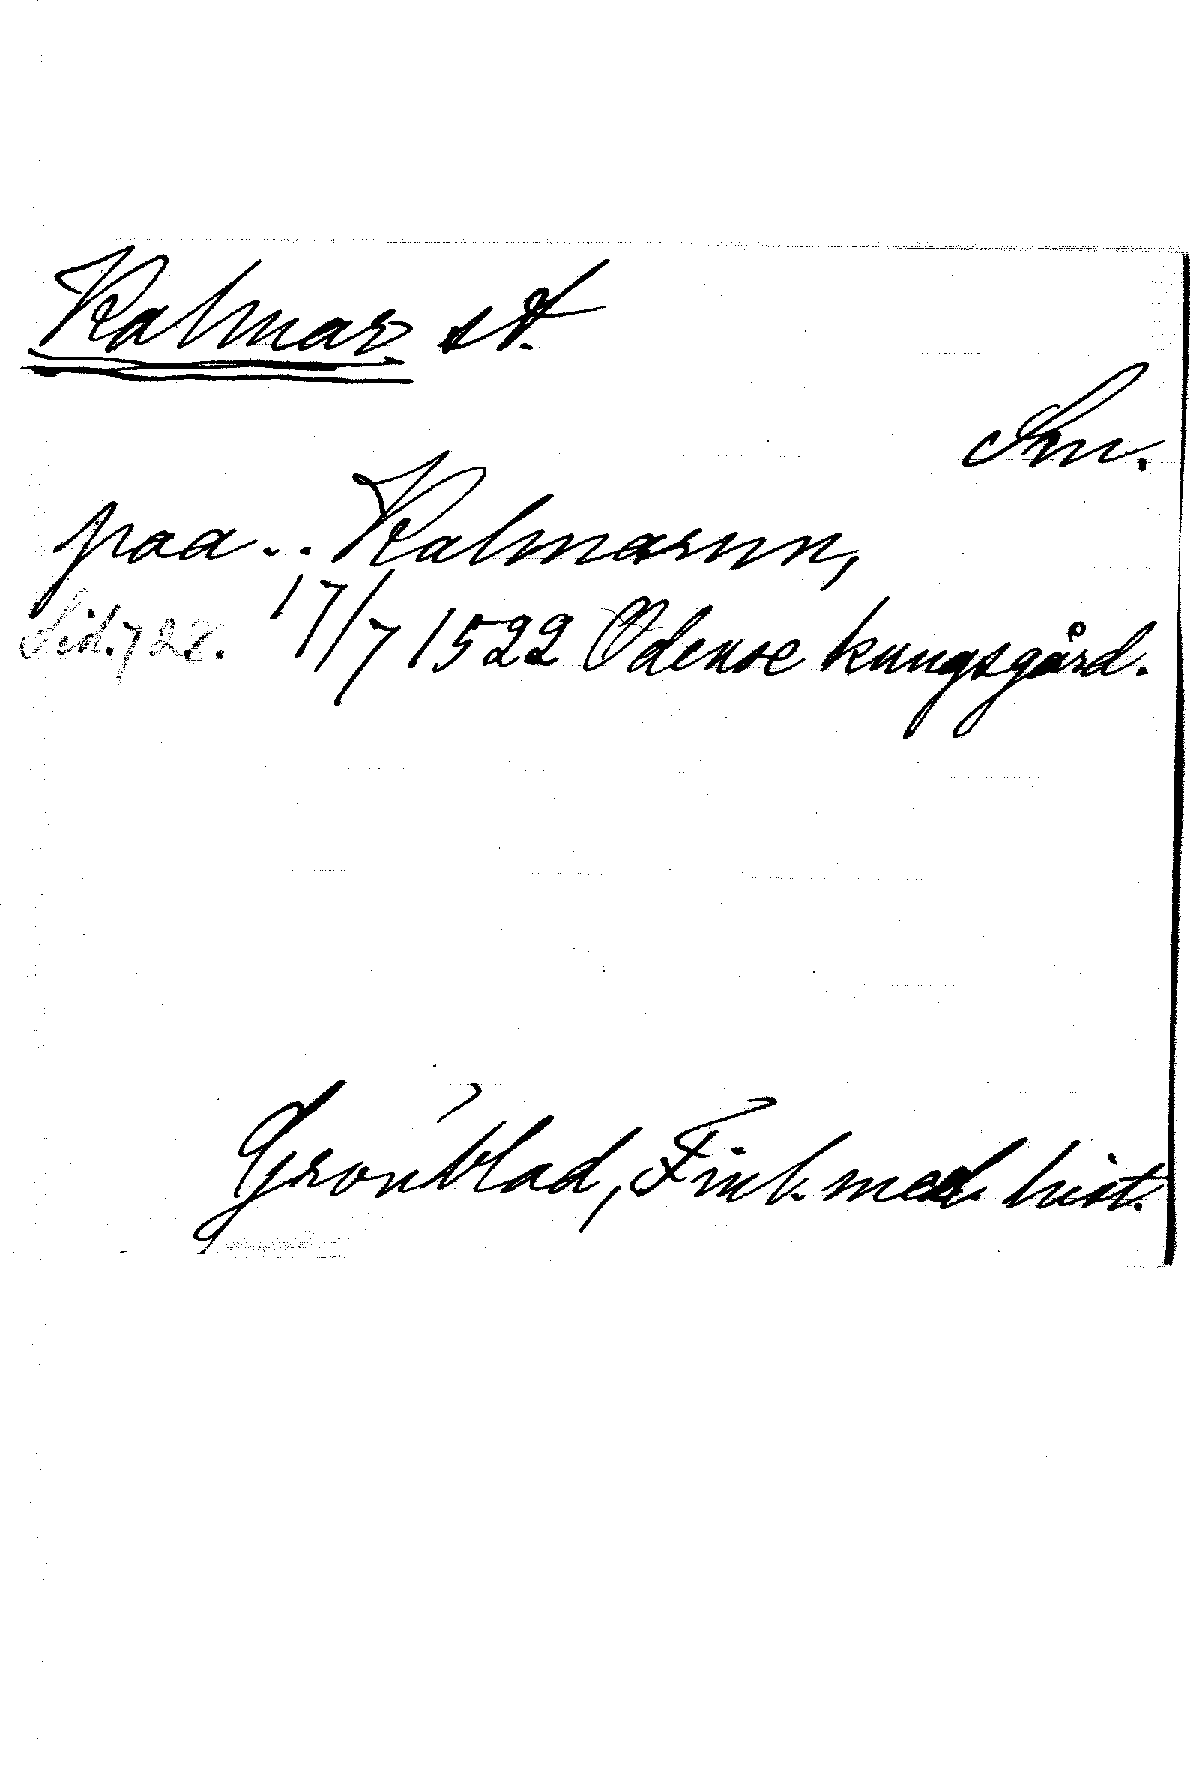 Kalmar st.
Sm.
paa .. Kalmarnn,
Sid. 728. 17/7 1522 Odense kungsgård.
Grönblad, Fink. med. hist.